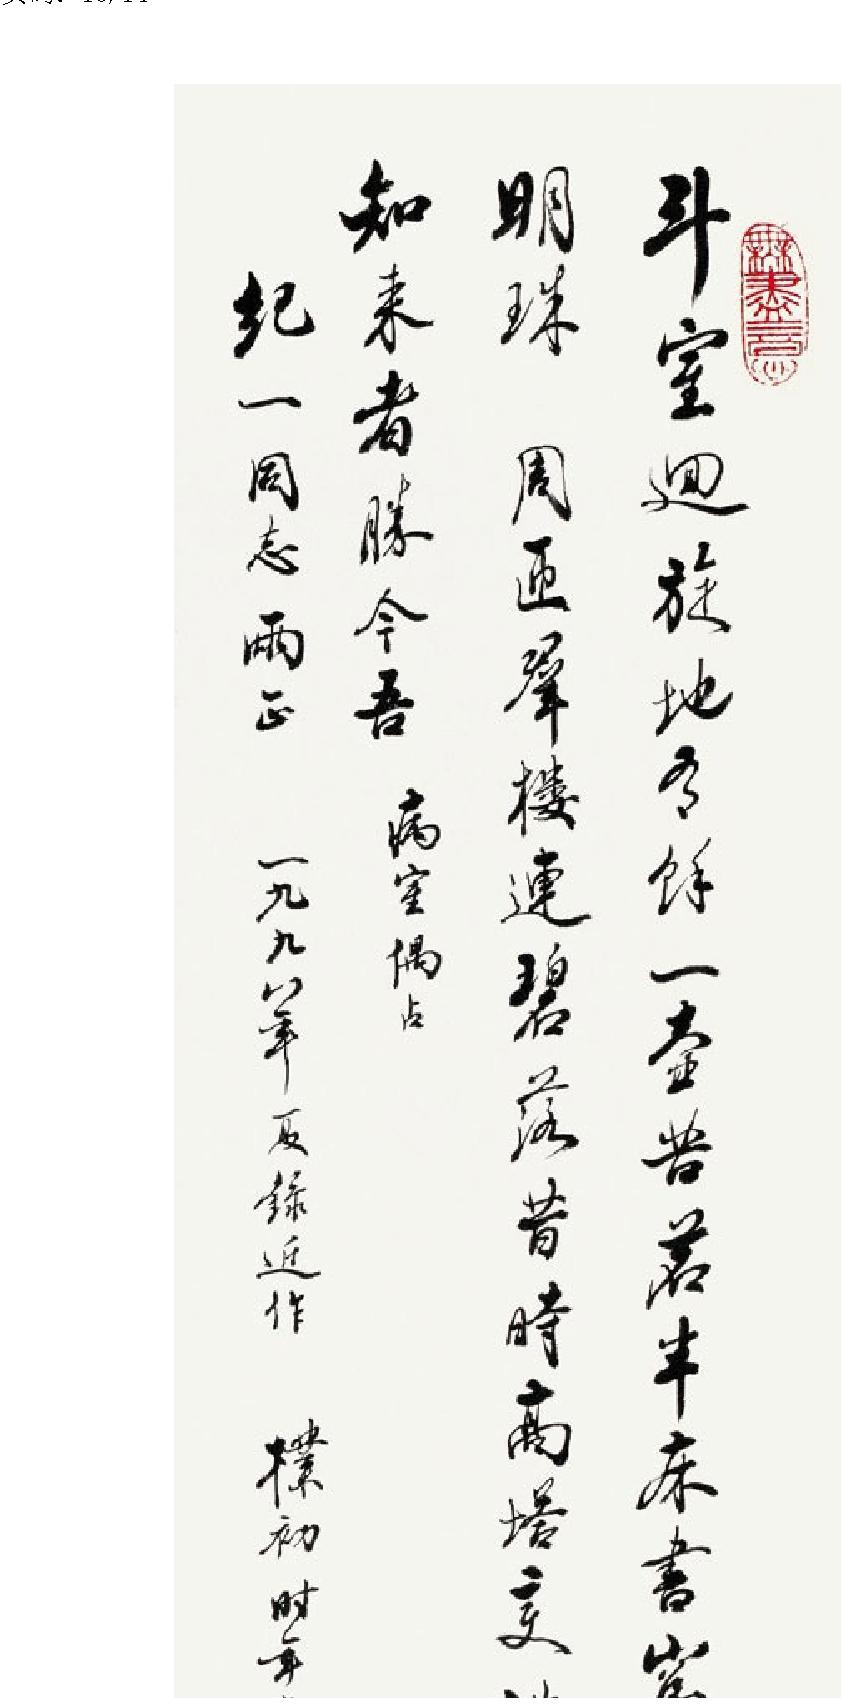 斗室迴旋地有餘一壺苦茗半床書窗
明珠 周匝群樓連碧落昔時高塔変
知来者勝今吾 病室偶占
紀一同志兩正 一九九八年夏錄近作 樸初时年
無盡意